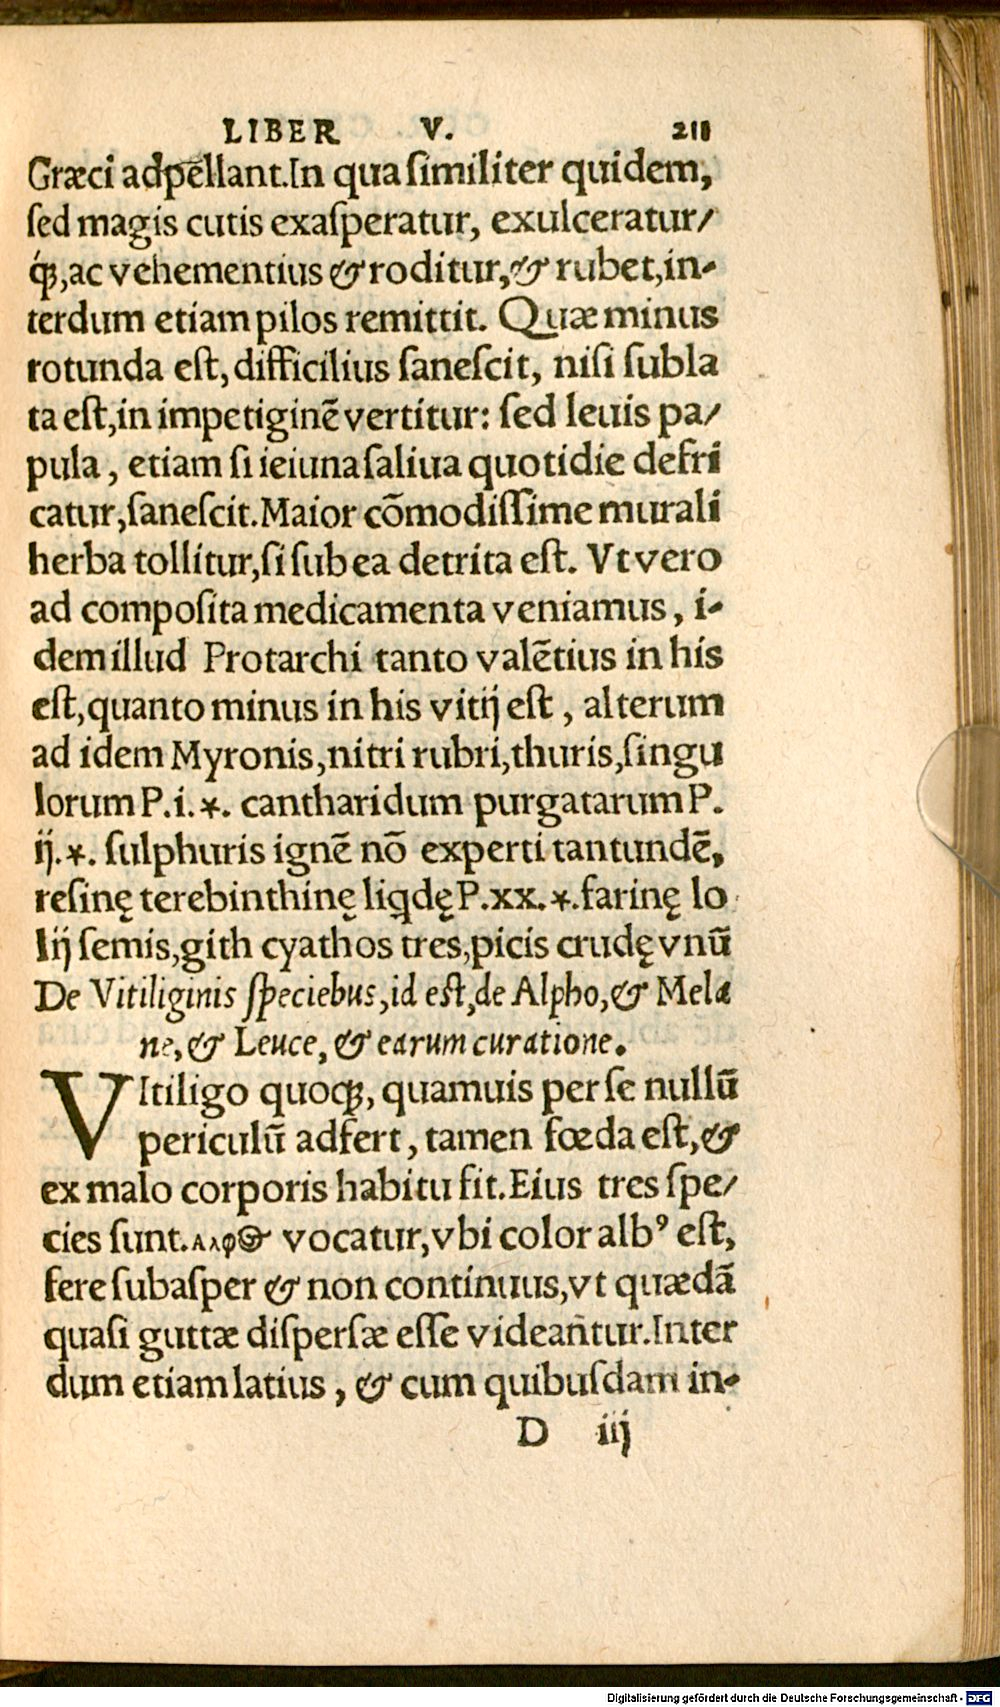 LIBER V. 211
Græci adpellant.In qua ſimiliter quidem,
ſed magis cutis exaſperatur, exulceratur/
q́ꝫ,ac vehementius & roditur,& rubet,in-
terdum etiam pilos remittit. Quæ minus
rotunda eſt,difficilius ſaneſcit, niſi ſubla
ta eſt,in impetiginē vertitur: ſed leuis pa/
pula , etiam ſi ieiuna ſaliua quotidie defri
catur,ſaneſcit.Maior cōmodiſſime murali
herba tollitur,ſi ſub ea detrita eſt. Vt vero
ad compoſita medicamenta veniamus, i-
dem illud Protarchi tanto valētius in his
eſt,quanto minus in his vitij eſt , alterum
ad idem Myronis,nitri rubri,thuris,ſingu
lorum P.i.*. cantharidum purgatarum P.
ij.*. ſulphuris ignē nō experti tantundē,
reſinę terebinthinę liqdę P.xx.*.farinę lo
lij ſemis,gith cyathos tres,picis crudę vnū
De Vitiliginis ſpeciebus,id eſt,de Alpho,& Mela
ne,& Leuce, & earum curatione.
VItiligo quoqꝫ, quamuis per ſe nullū
periculū adfert, tamen fœda eſt,&
ex malo corporis habitu fit.Eius tres ſpe/
cies ſunt.ἀλφος vocatur,vbi color albꝰ eſt,
fere ſubaſper & non continuus,vt quædā
quaſi guttæ diſperſæ eſſe videañtur.Inter
dum etiam latius , & cum quibuſdam in-
D iij
Digitalisierung gefördert durch die Deutsche Forschungsgemeinschaft - DFG